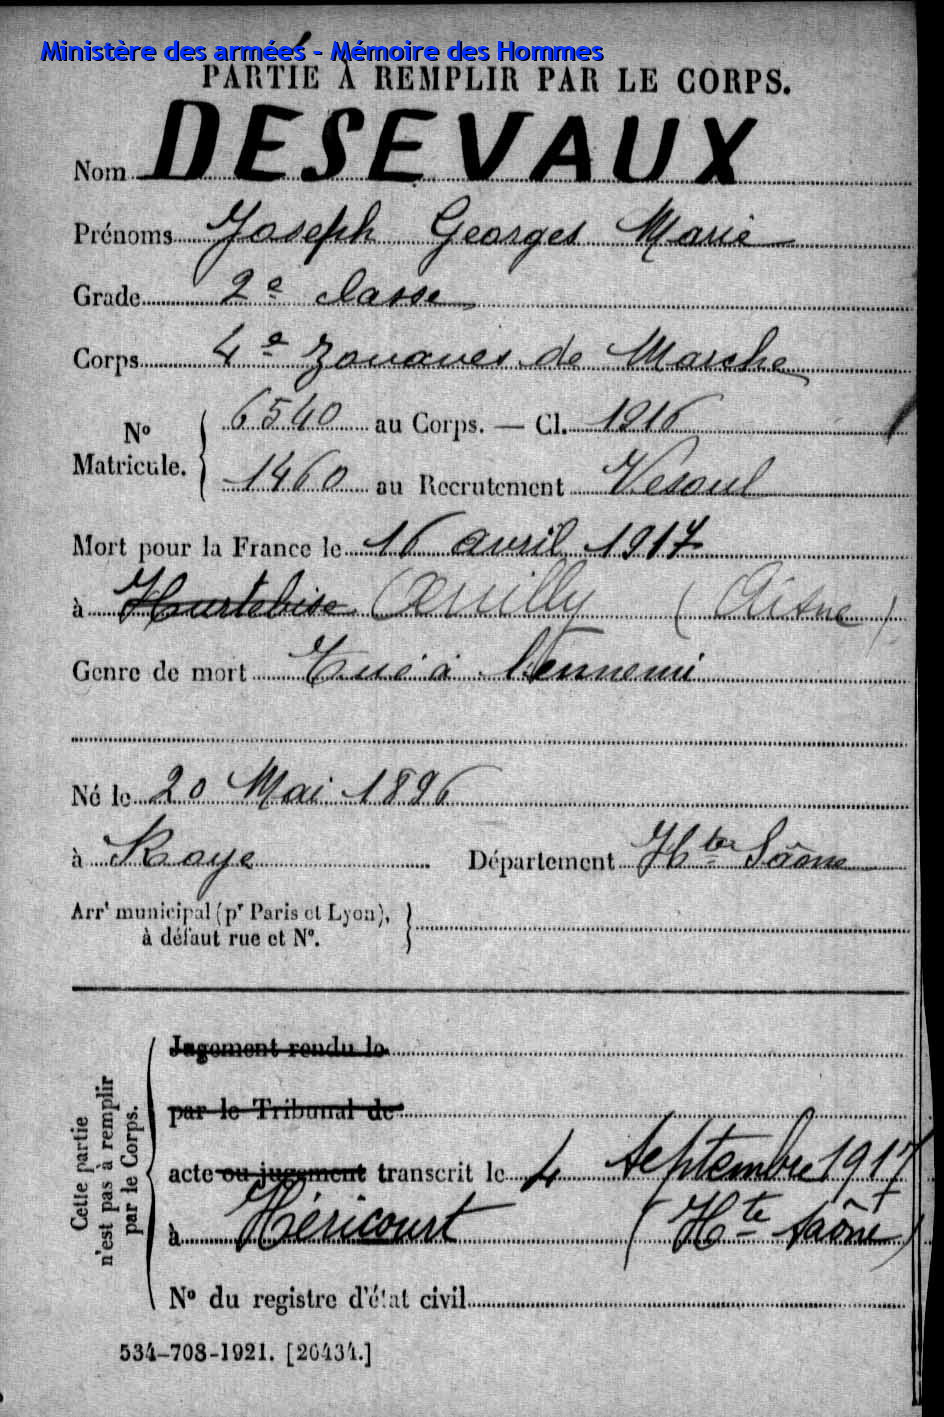 Ministère des armées - Mémoire des Hommes
PARTIE À REMPLIR PAR LE CORPS.
Nom DESEVAUX
Prénoms Joseph Georges Marie
Grade 2e classe
Corps 4e Zouaves de Marche
No Matricule. { 6540 au Corps. — Cl. 1916
1460 au Recrutement Vesoul
Mort pour la France le 16 avril 1917
à Hurtebise (Aisne)
Genre de mort Tué à l'ennemi
Né le 20 Mai 1896
à Raye Département Hte Saône
Arrt municipal (pr Paris et Lyon), }
à défaut rue et No.
Cette partie n'est pas à remplir par le Corps.
Jugement rendu le
par le Tribunal de
acte ou jugement transcrit le 4 septembre 1917
à Héricourt (Hte Saône)
No du registre d'état civil
534-708-1921. [26434.]